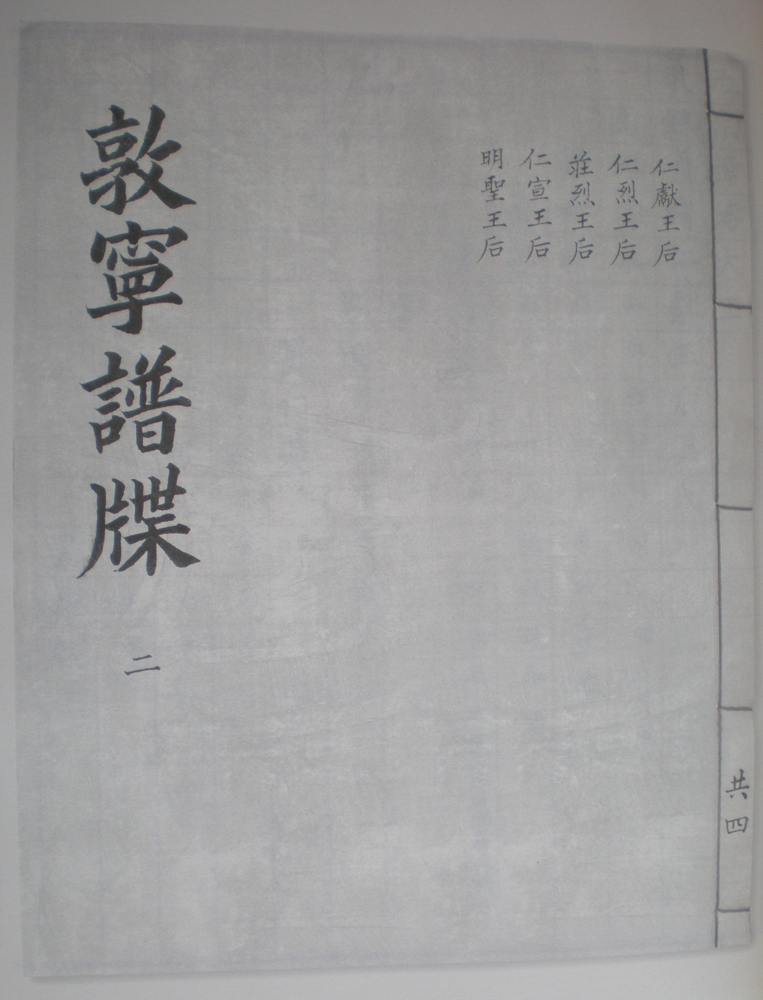 仁獻王后
仁烈王后
莊烈王后
仁宣王后
明聖王后
敦寧譜牒
二
共四